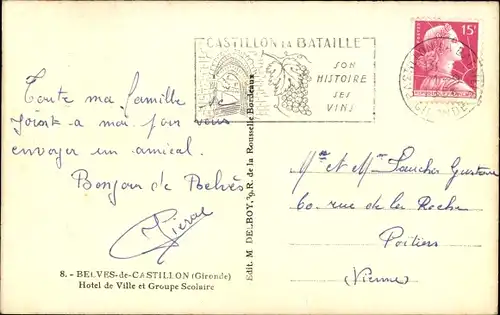 CASTILLON LA BATAILLE
SON
HISTOIRE
SES
VINS
15F
Toute ma famille se
joint à moi pour vous
envoyer un amical
Bonjour de Belvès
Pierre
8. - BELVES-de-CASTILLON (Gironde)
Hotel de Ville et Groupe Scolaire
Edit. M DELBOY, R. de la Rousselle Bordeaux
Mr et Mme Gustave
60 rue de la Roche
Poitiers
(Vienne)